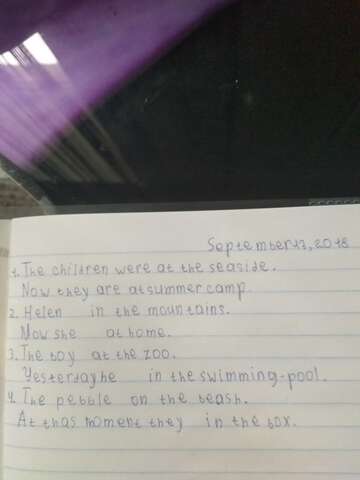 September 17, 2018
1. The children were at the seaside.
Now they are at summer camp.
2. Helen in the mountains.
Now she at home.
3. The boy at the zoo.
Yesterday he in the swimming-pool.
4. The pebble on the beash.
At thas moment they in the box.